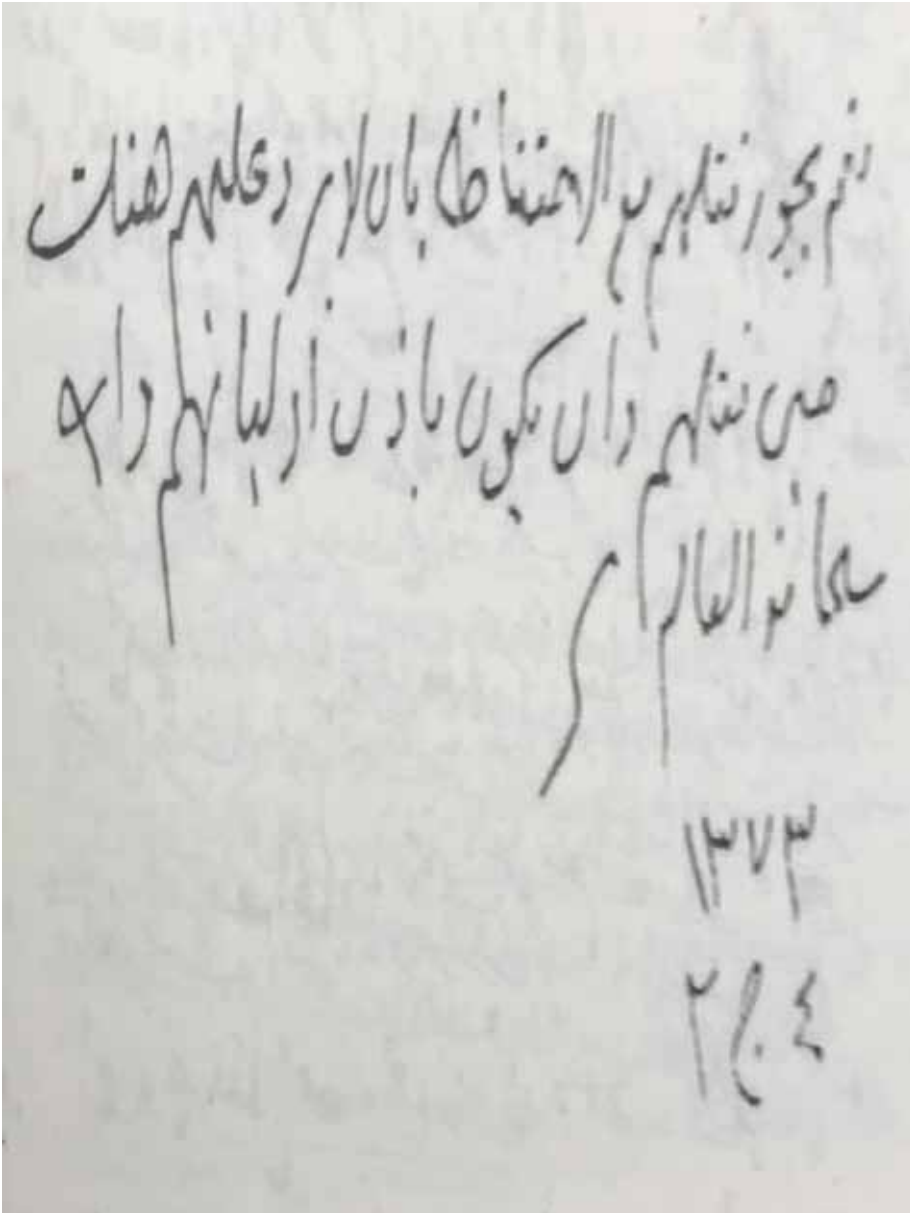 نعم يجوز نقلهم مع الاحتفاظ بان لا يرد عليهم هتك
من نقلهم وان يكون باذن اوليائهم والله
سبحانه العالم
١٣٧٣
٤ ج ٢